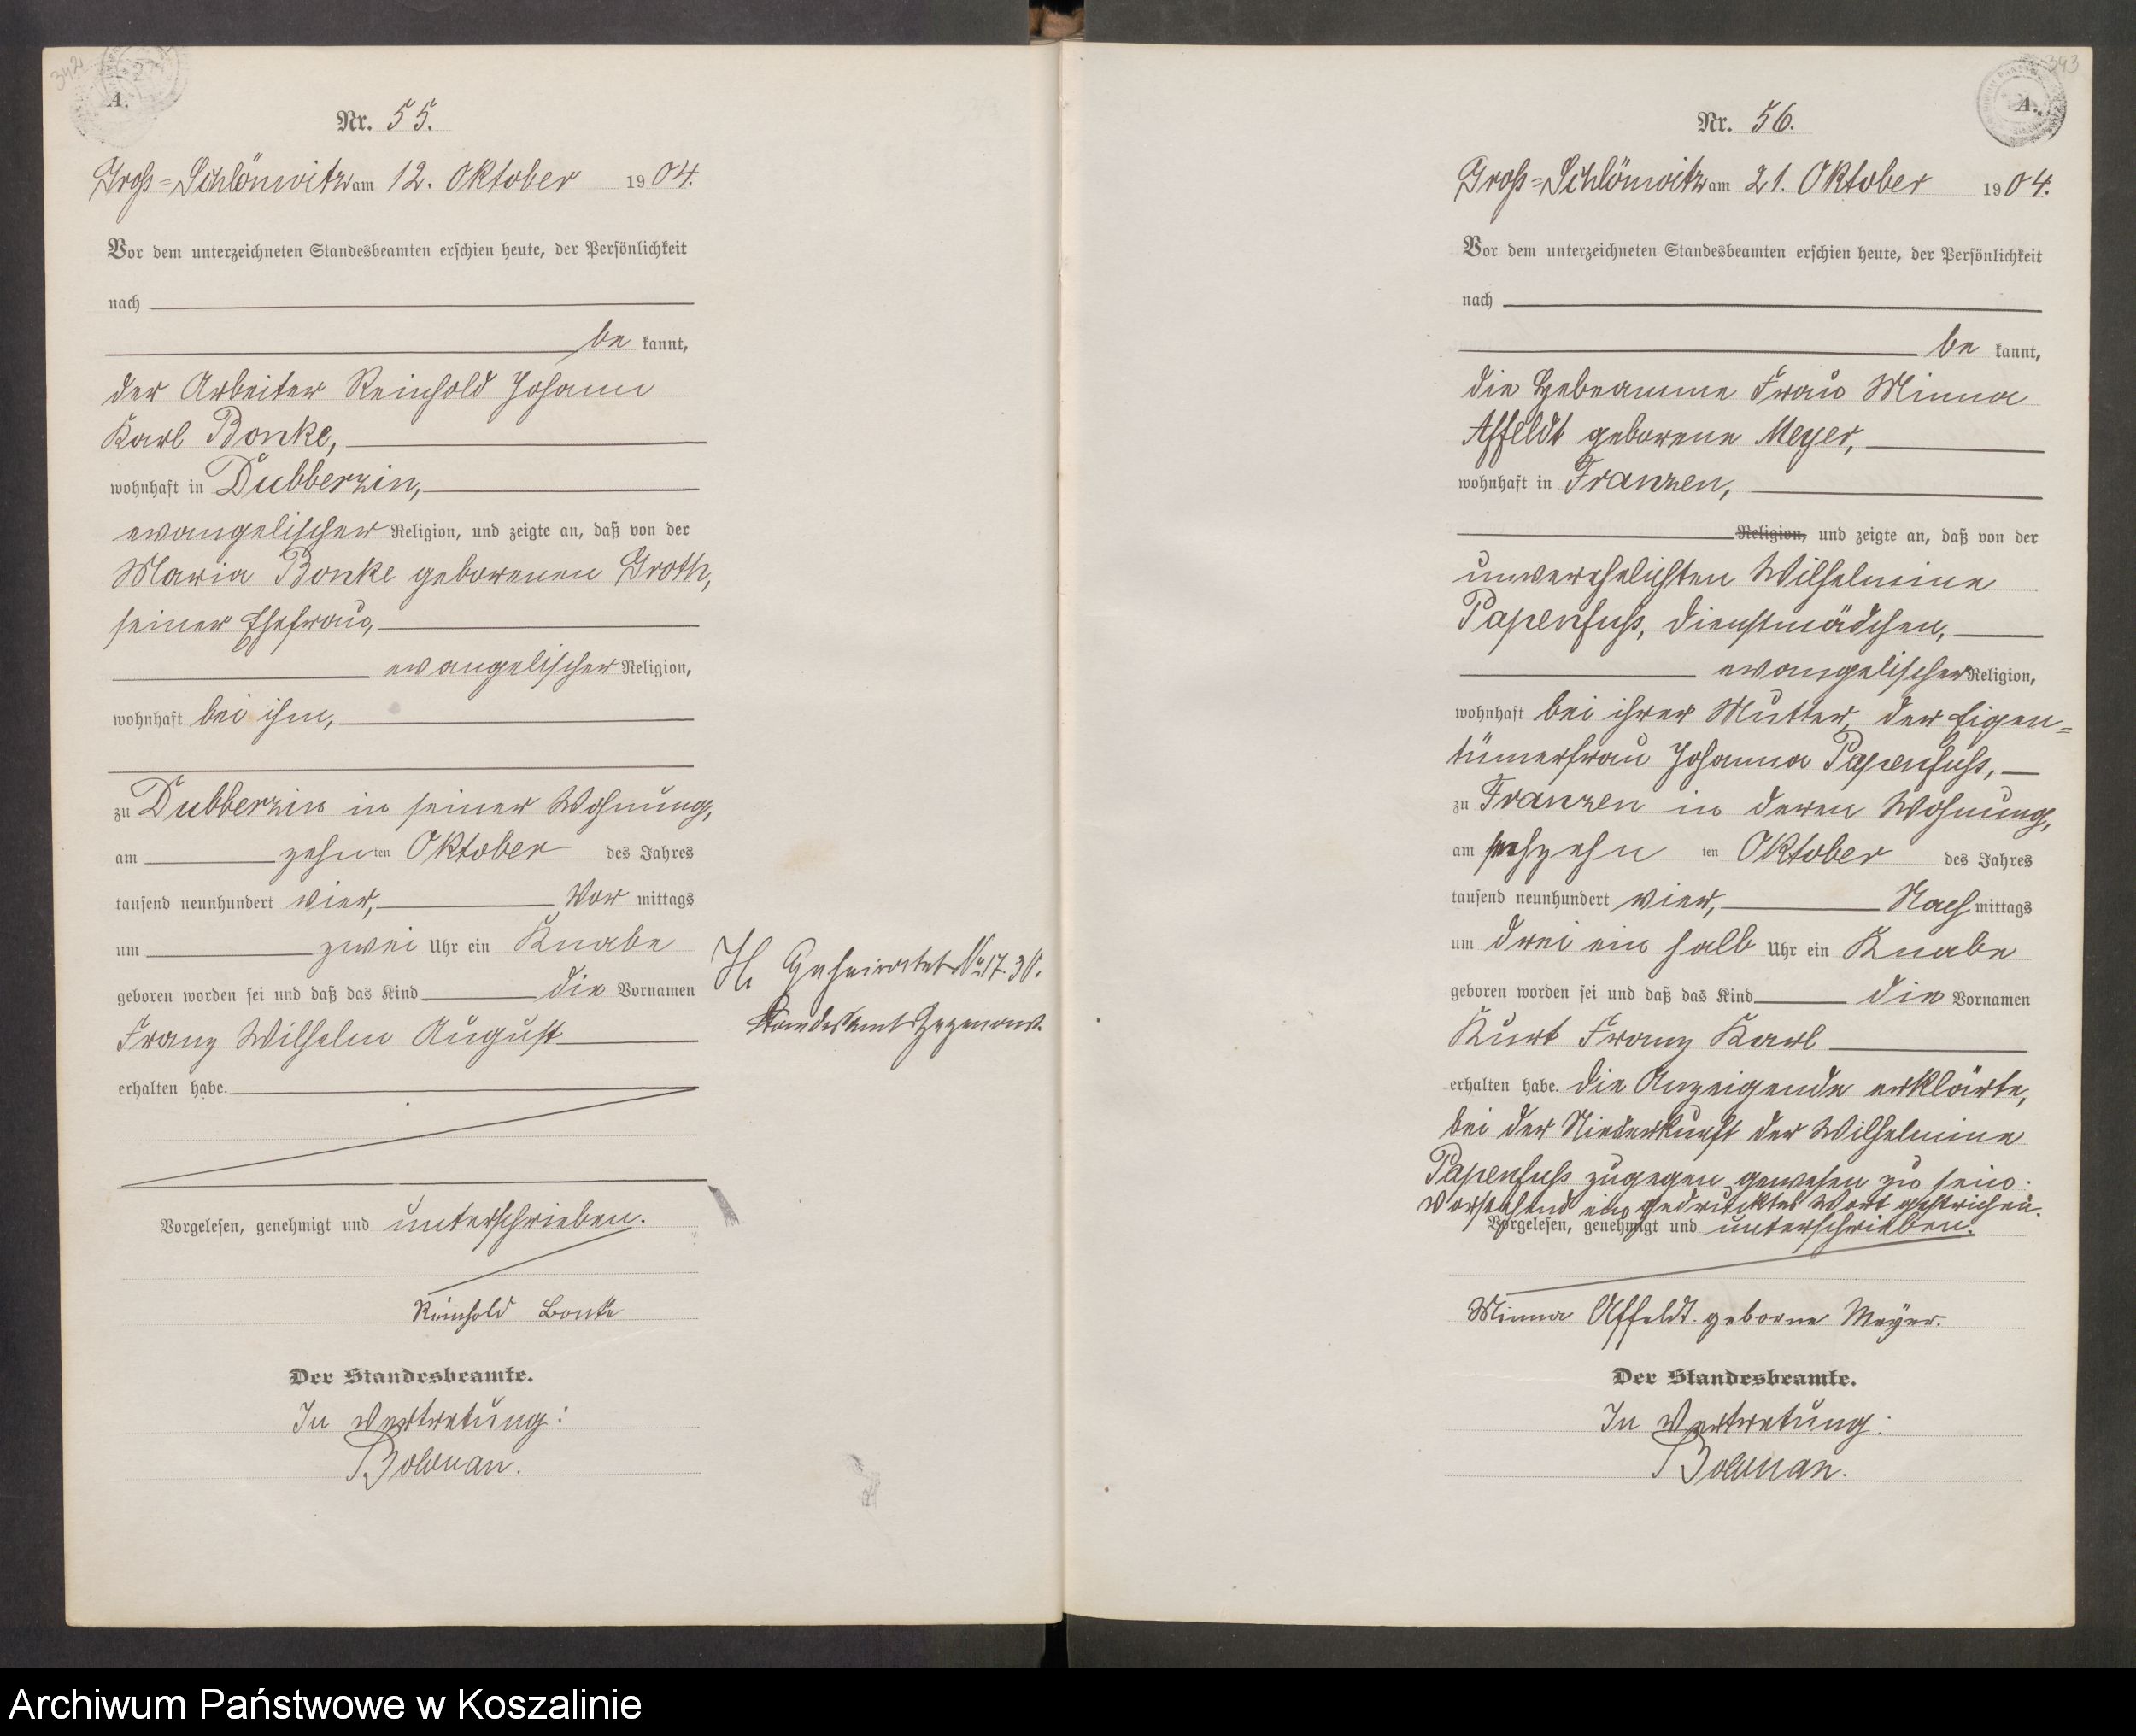 342
A.
Nr. 55.
Groß=Schlönwitz am 12. Oktober 1904.
Vor dem unterzeichneten Standesbeamten erschien heute, der Persönlichkeit
nach
be kannt,
der Arbeiter Reinhold Johann
Karl Bonke,
wohnhaft in Dubberzin,
evangelischer Religion, und zeigte an, daß von der
Maria Bonke geborenen Groth,
seiner Ehefrau,
evangelischer Religion,
wohnhaft bei ihm,
zu Dubberzin in seiner Wohnung,
am zehn ten Oktober des Jahres
tausend neunhundert vier, Vor mittags
um zwei Uhr ein Knabe
geboren worden sei und daß das Kind die Vornamen
Franz Wilhelm August
erhalten habe.
Vorgelesen, genehmigt und unterschrieben.
Reinhold Bonke
Der Standesbeamte.
In Vertretung:
Bolduan.
H Geheiratet No 17. 30.
Standesamt
343
A.
Nr. 56.
Groß=Schlönwitz am 21. Oktober 1904.
Vor dem unterzeichneten Standesbeamten erschien heute, der Persönlichkeit
nach
be kannt,
die Hebeamme Frau Minna
Affeldt geborene Meyer,
wohnhaft in Franzen,
Religion, und zeigte an, daß von der
unverehelichten Wilhelmine
Papenfuß, Dienstmädchen,
evangelischer Religion,
wohnhaft bei ihrer Mutter, der Eigen=
tümerfrau Johanna Papenfuß,
zu Franzen in deren Wohnung,
am sechszehn ten Oktober des Jahres
tausend neunhundert vier, Nach mittags
um drei ein halb Uhr ein Knabe
geboren worden sei und daß das Kind die Vornamen
Kurt Franz Karl
erhalten habe. Die Anzeigende erklärte,
bei der Niederkunft der Wilhelmine
Papenfuß zugegen gewesen zu sein.
Vorstehend ein gedrucktes Wort gestrichen.
Vorgelesen, genehmigt und unterschrieben.
Minna Affeldt geborne Meÿer.
Der Standesbeamte.
In Vertretung:
Bolduan.
Archiwum Państwowe w Koszalinie